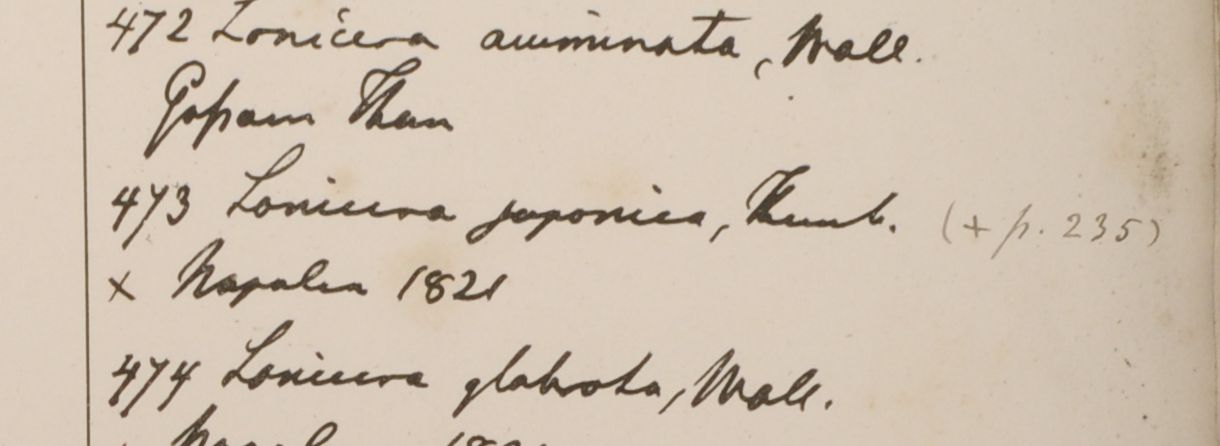 472 Lonicera acuminata, Wall.
Gosain Than
473 Lonicera japonica, Thunb. (+ p. 235)
x Napalia 1821
474 Lonicera glabrata, Wall.